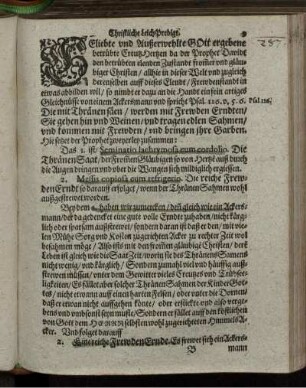 Christliche LeichPredigt.
Geliebte vnd Außerwehlte GOtt ergebene
betrübte Creutz Hertzen da der Prophet David
den betrübten elenden Zustande frommer vnd gläu-
biger Christen / allhie in dieser Welt vnd zugleich
derenselben auff dieses Elende / Frewdenstandt in
etwas abbilden wil / so nimbt er dazu an die Handt ein fein artiges
Gleichnüsse von einem Ackersmann vnd spricht Psal. 126. v. 5. 6.
Psal. 126.
Die mit Thränen säen / werden mit Frewden Erndten /
Sie gehen hin vnd Weinen / vnd tragen edlen Sahmen /
vnd kommen mit Frewden / vnd bringen jhre Garben.
Hie setzet der Prophet zweyerley zusammen:
Das 1. ist / Seminatio lachrymosa cum cordolio. Die
Thränen Saat / der Frommen Gläubigen so von Hertz auß durch
die Augen dringen vnd vber die Wangen sich mildiglich ergiessen.
2. Messis copiosa cum refrigerio. Die reiche Frew-
den Ernde so darauff erfolget / wenn der Thränen Sahmen wohl
außgestrewet worden.
Bey dem 1. haben wir zumercken / deß gleich wie ein Ackers-
mann / der da gedencket eine gute volle Erndte zuhaben / nicht kärg-
lich oder sparsam außstrewet / sondern daran ist daß er den / mit vie-
len Mühe Sorg vnd Kosten zugerichten Acker zu rechter Zeit wol
besahmen möge / Also ists mit den frommen gläubigen Christen / der
Leben ist gleich wie die Saat Zeit /
nicht wenig / vnd kärglich / Sondern zumahl viel vnd häuffig auß-
strewen müssen / unter dem Gewitter vieles Creutzes vnd Trübse-
ligkeiten / Es fället aber solcher Thränen Sahmen der Kinder Got-
tes / nicht etwann auff einen harten Felsen / oder vnter die Dornen
daß er etwan nicht auffgehen könte / oder ersticke vnd also vergebens
vnd vmbsonst seyn muste / Sondern er fället auff den köstlichen
von Gott dem HErrn selbsten wohl zugerichteten Himmels A-
cker. Vnd folget darauff
2. Eine reiche Frewden Ernde. Es frewet sich ein Ackers-
B
mann